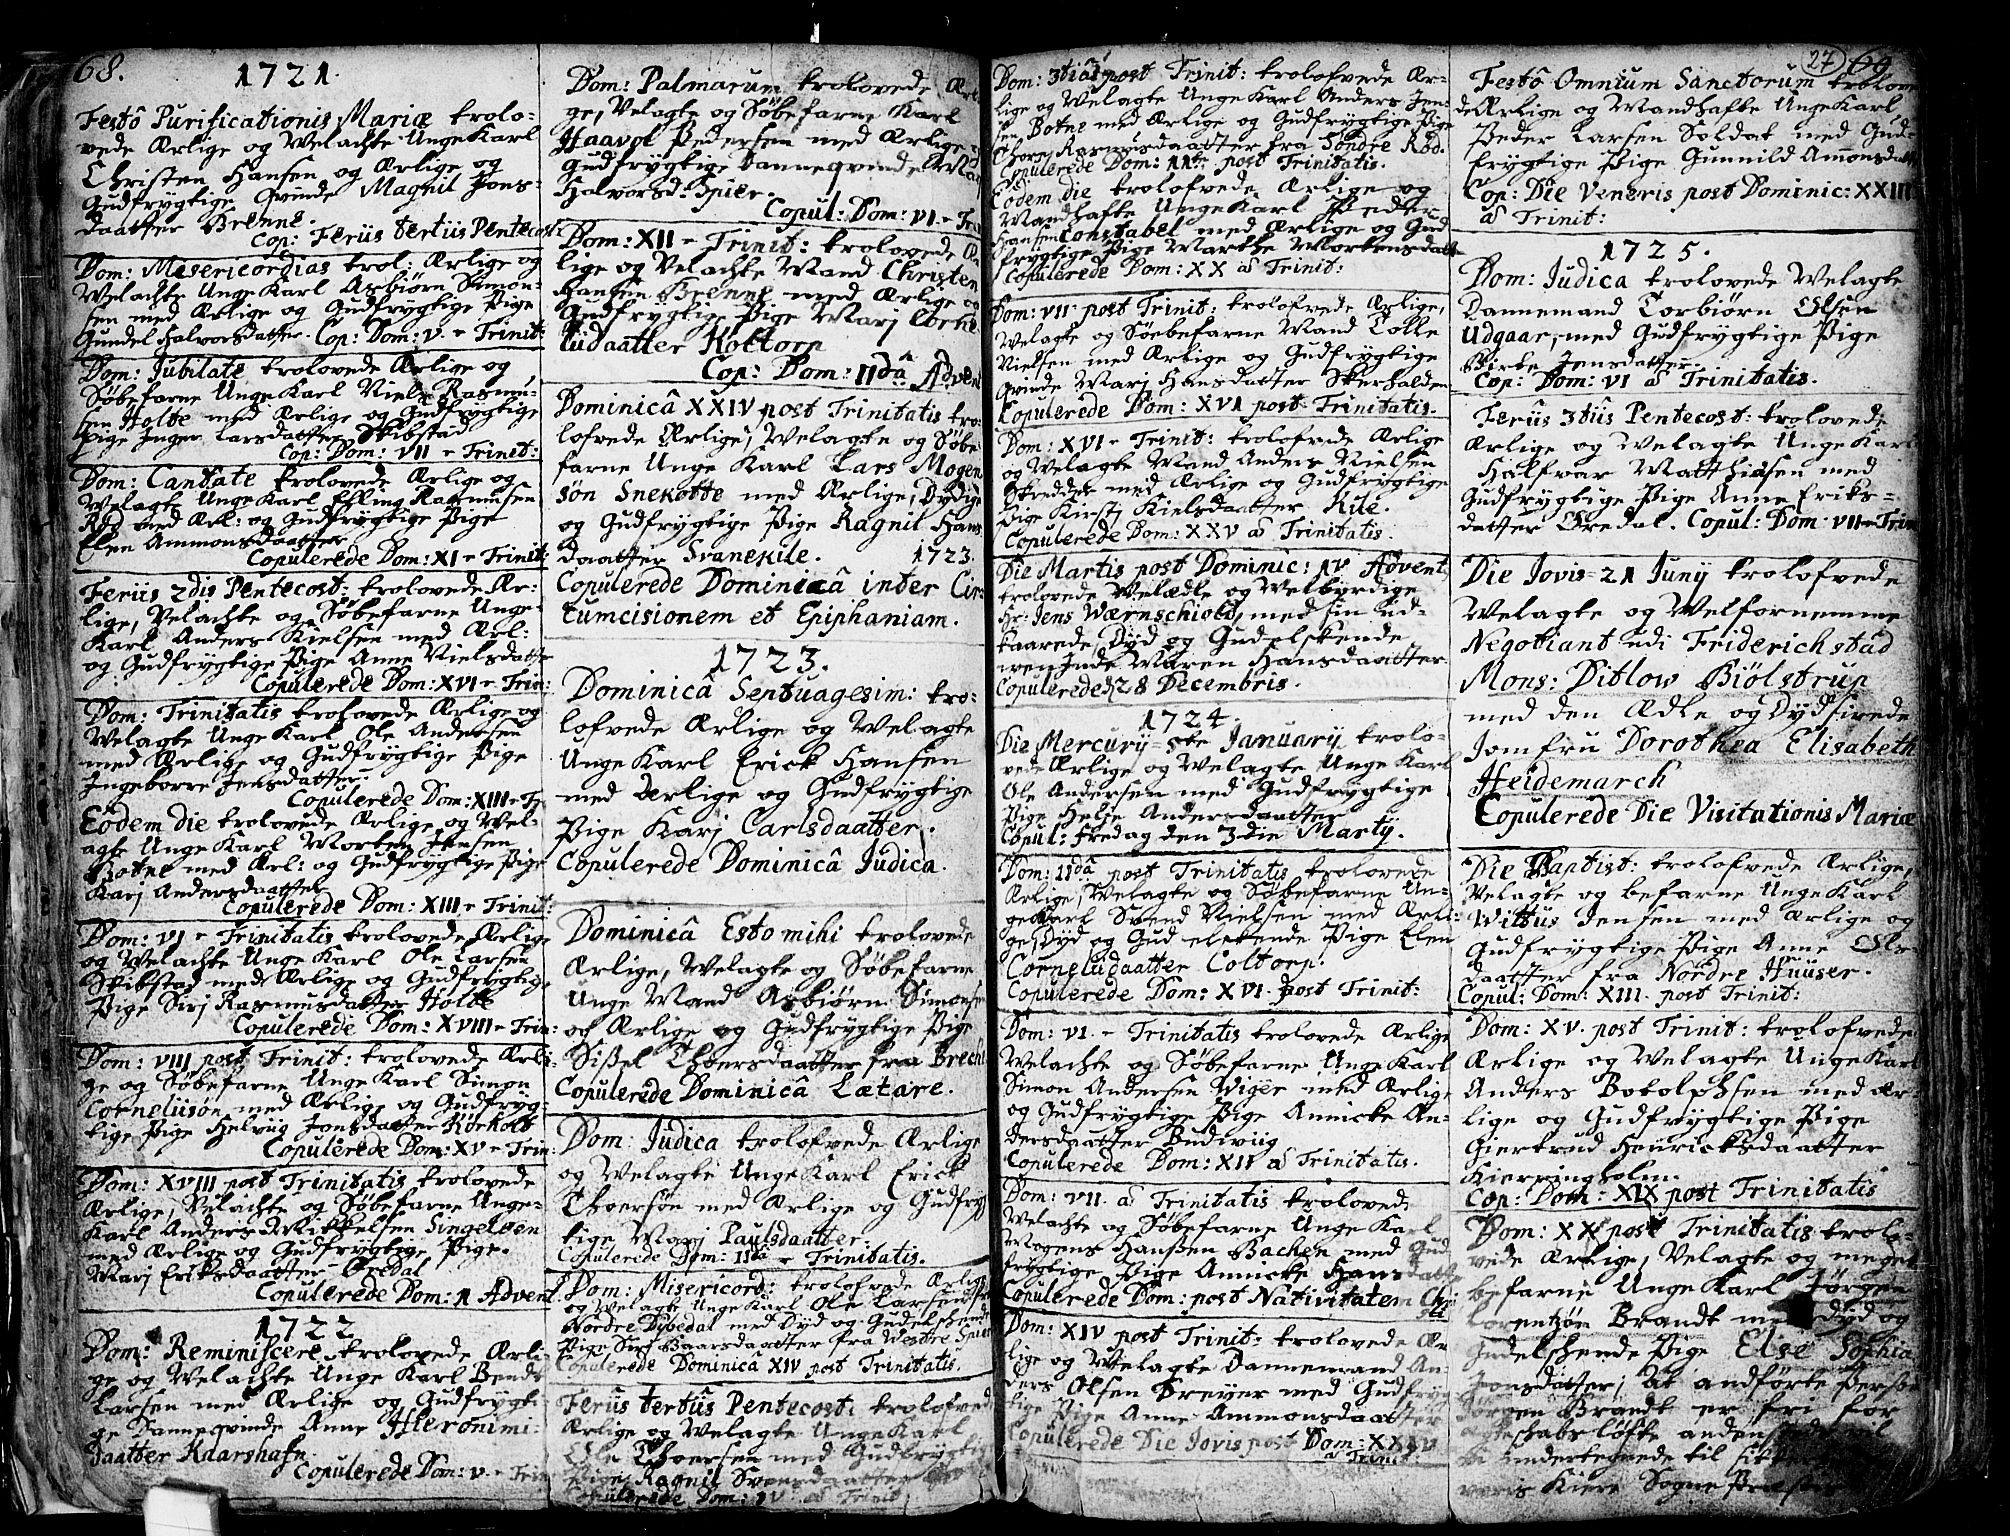 68.
1721.
Festô Purificationis Mariæ trolo-
vede Ærlige og Velachte Unge Karl
Christen Hansen og Ærlige og
Gudfrygtige Qvinde Magnil Jons-
daatter Brenne.
Cop: Feriis tertiis Pentecost:
Dom: Misericordias trol: Ærlige og
Welachte Unge Karl Asbiørn Simon-
sen med Ærlige og Gudfrygtige Pige
Gundel Halvorsdatter. Cop: Dom: V. Trinit:
Dom: Jubilate trolovede Ærlige og
Søbefarne Unge Karl Niels Rasmu-
sen Holte med Ærlige og Gudfrygtige
Pige Inger Larsdatter Skibstad
Cop: Dom: VII Trinit:
Dom: Cantate trolovede Ærlige og
Velagte Unge Karl Elling Rasmusen
Röd med Ærl: og Gudfrygtige Pige
Elen Ammonsdaatter
Copulerede Dom: XI Trinit:
Feriis 2dis Pentecost: trolovede Ær-
lige, Velachte og Søbefarne Unge
Karl Anders Kielsen med Ærl:
og Gudfrygtige Pige Anne Nielsdatter
Copulerede Dom: XVI Trin:
Dom: Trinitatis trolovede Ærlige og
Welagte Unge Karl Ole Andersen
med Ærlige og Gudfrygtige Pige
Ingeborre Jensdaatter.
Copulerede Dom: XIII Tr
Eôdem die trolovede Ærlige og Wel-
agte Unge Karl Morten Jensen
Botne med Ærl: og Gudfrygtige Pige
Karj Andersdaatter
Copulerede Dom: XIII Trinit:
Dom: VI Trinitatis trolovede Ærlige
og Velachte Unge Karl Ole Larsen
Skibstad med Ærlige og Gudfrygtige
Pige Sirj Rasmusdatter Holte
Copulerede Dom: XVIII Trin:
Dom: VIII post Trinit: trolovede Ærli-
ge og Søbefarne Unge Karl Simon
Corneliisøn med Ærlige og Gudfryg-
tige Pige Helvig Jonsdatter Körholt
Copulerede Dom: XV Trin:
Dom: XVIII post Trinitatis trolovede
Ærlige, Velachte og Søbefarne Unge
Karl Anders Mikkelsen Singeløen
med Ærlige og Gudfrygtige Pige.
Marj Eriksdaatter Øredal
Copulerede Dom: 1 Advent
1722
Dom: Reminiscere, trolovede Ærli-
ge og Velachte Unge Karl Bendt
Larsen med Ærlige og Gudfrygti-
ge Danneqvinde Anne Hieronimi-
daatter Kaarshafn
Copulerede Dom: V. Trin
Dom: Palmarum trolovede Ærli
ge, Velagte og Søbefarne Karl
Haavol Pedersen med Ærlige og
Gudfrygtige Danneqvinde
Halvorsd: Spier.
Copul: Dom: VI Trin
Dom: XII Trinit: trolovede Æ
lige og Velachte Mand Christen
Hansen Brenne med Ærlige og
Gudfrygtige Pige Marj Corne
liidaatter Koltorp
Cop: Dom: IIdâ Advent
Dominicâ XXIV post Trinitatis tro-
lofvede Ærlige, Welagte og Søbe
farne Unge Karl Lars Mogen
søn Snekotte med Ærlige, Dydige
og Gudfrygtige Pige Ragnil Hans
daatter Svanekile. 1723.
Copulerede Dominicâ inter Cir-
cumcisionem et Epiphaniam.
1723.
Dominicâ Septuagesim: tro-
lofvede Ærlige og Velagte
Unge Karl Erick Hansen
med ærlige og Gudfrygtige
Pige Karj Carlsdaatter.
Copulerede Dominicâ Judica.
Dominicâ Esto mihi trolovede
Ærlige, Welagte og Søbefarne
Unge Mand Asbiørn Simonsen
och Ærlige og Gudfrygtige Pige
Sißel Thoersdaatter fra Brecke
Copulerede Dominicâ Lætare.
Dom: Judica trolofvede Ærlige
og Velagte Unge Karl Erick
Thoersøn med Ærlige og Gudfryg
tige Marj Paulsdaatter.
Copulerede Dom: IIdâ Trinitatis.
Dom: Misericord: trolofvede Ærlige
og Velagte Unge Karl Ole Larsen
Nordre Dybedal med Dyd og Gudelskende
Pige Siri Baarsdaatter fra Westre
Copulerede Dominicâ XIV post Trinitatis.
Feriis tertiis Pentecost: trolofvede
Ærlige og Velagte Unge Karl
Ole Thoersen med Gudfrygtige
Pige Ragnil Svensdaatter
Copulerede Dom: V Trinit
27 69
Dom: 3tiâ post Trinit: trolofvede Ær-
lige og Welagte Unge Karl Anders Jen-
sen Botne med Ærlige og Gudfrygtige Pige
Thore Rasmusdaatter fra Söndre Röd.
Copulerede Dom: 11te post Trinitatis.
Eôdem die trolofvede Ærlige og
Mandhafte Unge Karl Peder
Hansen Constabel med Ærlige og Gud
frygtige Pige Marthe Mortensdaatter
Copulerede Dom: XX â Trinit:
Dom: VII post Trinit: trolofvede Ærlige,
Welagte og Söebefarne Mand Tolle
Nielsen med Ærlige og Gudfrygtige
Qvinde Marj Hansdaatter Skierhalden
Copulerede Dom: XVI post Trinitatis.
Dom: XVI Trinit: trolofvede Ærlige
og Welagte Mand Anders Nielsen
Skredder med Ærlige og Gudfrygtige
Pige Kirstj Kielsdaatter Kile.
Copulerede Dom: XXV â Trinitatis.
Die Martis post Dominic: IV Advent:
trolovede Velædle og Welbyrdige
Hr: Jens Wærnschiold, med sin Kid-
kaarede, Dyd og Gudelskende
Maren Hansdaatter
Copulerede 28 Decembris.
1724.
Die Mercurij 5te Januarij trolo-
vede Ærlige og Velagte Unge Karl
Ole Andersen med Gudfrygtige
Pige Helje Andersdaatter
Copul: Fredag den 3die Martij.
Dom: IIdâ post Trinitatis trolovede
Ærlige, Welagte og Søbefarne Un-
ge Karl Svend Nielsen med Ærli-
ge, Dyd og Gud elskende Pige Elen
Corneliidaatter Coltorp.
Copulerede Dom: XVI post Trinit:
Dom: VI. Trinitatis trolofvede Ærlige
Velachte og Søbefarne Unge Karl
Simon Andersen Wiger med Ærlige
og Gudfrygtige Pige Annicke An-
dersdaatter Budwiig
Copulerede Dom: XII â Trinitatis.
Dom: VII. â Trinitatis trolovede
Velachte og Søbefarne Unge Karl
Mogens Hanßen Bachen med Gud
frygtige Pige Annicke Hansdatter
Copulerede Dom: post Nativitatem Chri
sti
Dom: XIV post Trinit: trolovede Ær
lige og Welagte Dannemand An-
ders Olsen Dreyer med Gudfryg
tige Pige Anne Ammonsdaatter
Copulerede Die Jovis post Dom: XXIV
â Trinit:
Festô Omnium Sanctorum trolove
de Ærlige og Mandhafte Unge Karl
Peder Larsen Soldat med Gud-
frygtige Pige Gunnild Amonsdatt
Cop: Die Veneris post Dominic: XXIII
â Trinit:
1725.
Dom: Judica trolovede Welagte
Dannemand Torbiørn Olsen
Udgaar, med Gudfrygtige Pige
Birte Jensdatter
Cop: Dom: VI â Trinitatis.
Feriis 3tiis Pentecost: trolovede
Ærlige og Welagte Unge Karl
Halfvar Matthiæsen med
Gudfrygtige Pige Anne Eriks-
datter Øredal. Copul: Dom: VII Trin
Die Jovis 21 Junij trolofvede
Welagte og Welfornemme
Negotiant udi Friderichstad
Mons: Ditlow Biølstrup
med den Ædle og Dydsirede
Jomfru Dorothea Elisabeth
Heidemarch
Copulerede Die Visitationis Mariæ
Die Baptist: trolofvede Ærlige,
Velagte og befarne Unge Karl
Wittus Jensen med Ærlige og
Gudfrygtige Pige Anne Ols
daatter fra Nordre Huuser.
Copul: Dom: XIII. post Trinit:
Dom: XV. post Trinit: trolofvede
Ærlige og Velagte Unge Karl
Anders Botolphsen med Ær-
lige og Gudfrygtige Pige
Giertrud Henricksdaatter
Kierringholm.
Cop: Dom: XIX post Trinitatis
Dom: XX post Trinitatis trolo-
vede Ærlige, Velagte og meget
befarne Unge Karl Jörgen
Lorentzøn Brandt med Dyd og
Gudelskende Pige Else Sophia
Jonsdatter; at andförte Person
Jörgen Brandt er fri for
egteskabs löfte andensteds
undertegnede til
Kiere Sogne Præst